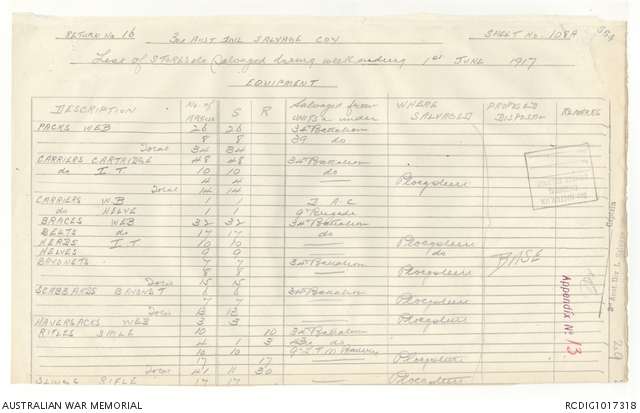 RETURN No 16 3RD AUST DIV SALVAGE COY SHEET No. 108A
List of STORES &c Salvaged during week ending 1st JUNE 1917
EQUIPMENT
DESCRIPTION No of S R Salvaged from WHERE PROPOSED REMARKS
UNITS as under SALVAGED DISPOSAL
PACKS WEB 26 26 34 Battalion
8 8 39 do
Total 34 34
CARRIERS CARTRIDGE 48 48 34 Battalion
do I.T 10 10 do
4 4 Ploegsteert
Total 14 14
CARRIERS W.B 1 1 D A C
do HELVE 1 1 9 Brigade
BRACES WEB 32 32 34 Battalion
BELTS do 17 17 do
HEADS I.T 10 10 Ploegsteert
HELVES 9 9 do
BAYONETS 7 7 34 Battalion
8 8 Ploegsteert BASE
Total 15 15
SCABBARDS BAYONET 6 6 34 Battalion
7 7 Ploegsteert
Total 13 13
HAVERSACKS WEB 3 3 Ploegsteert
RIFLES 10 10 34 Battalion
4 1 3 do
10 10
17 17 Ploegsteert
Total 41 11 30
SLINGS RIFLE 17 17 Ploegsteert
Appendix No 13.
AUSTRALIAN WAR MEMORIAL RCDIG1017318